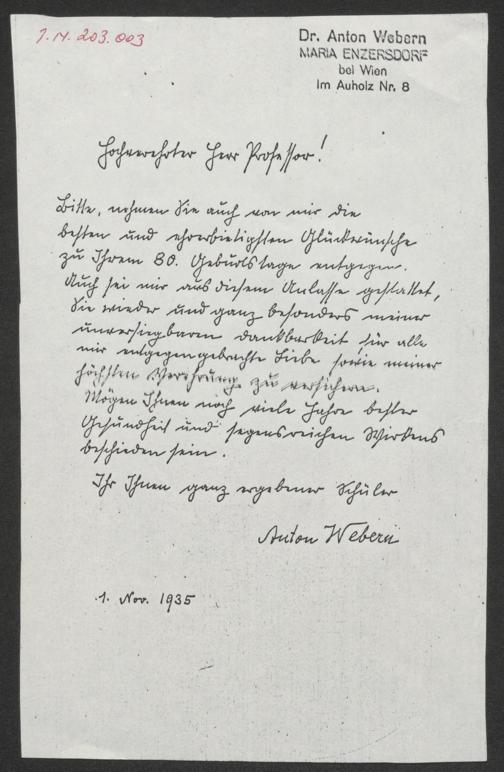 I.N. 203.003
Dr. Anton Webern
MARIA ENZERSDORF
bei Wien
Im Auholz Nr. 8
Hochverehrter Herr Professor!
Bitte, nehmen Sie auch von mir die
besten und ehrerbietigsten Glückwünsche
zu Ihrem 80. Geburtstage entgegen.
Auch sei mir aus diesem Anlasse gestattet,
Sie wieder und ganz besonders meiner
unversiegbaren Dankbarkeit für alle
mir entgegengebrachte Liebe sowie meiner
höchsten Verehrung zu versichern.
Mögen Ihnen noch viele Jahre bester
Gesundheit und segensreichen Wirkens
beschieden sein.
Ihr Ihnen ganz ergebener Schüler
Anton Webern
1. Nov. 1935